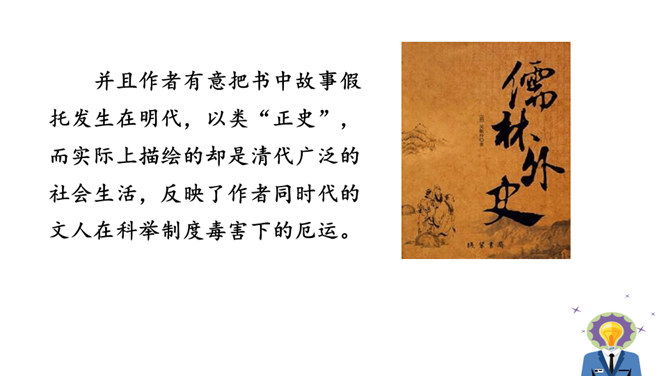 并且作者有意把书中故事假
托发生在明代，以类“正史”，
而实际上描绘的却是清代广泛的
社会生活，反映了作者同时代的
文人在科举制度毒害下的厄运。
儒林外史
线装书局